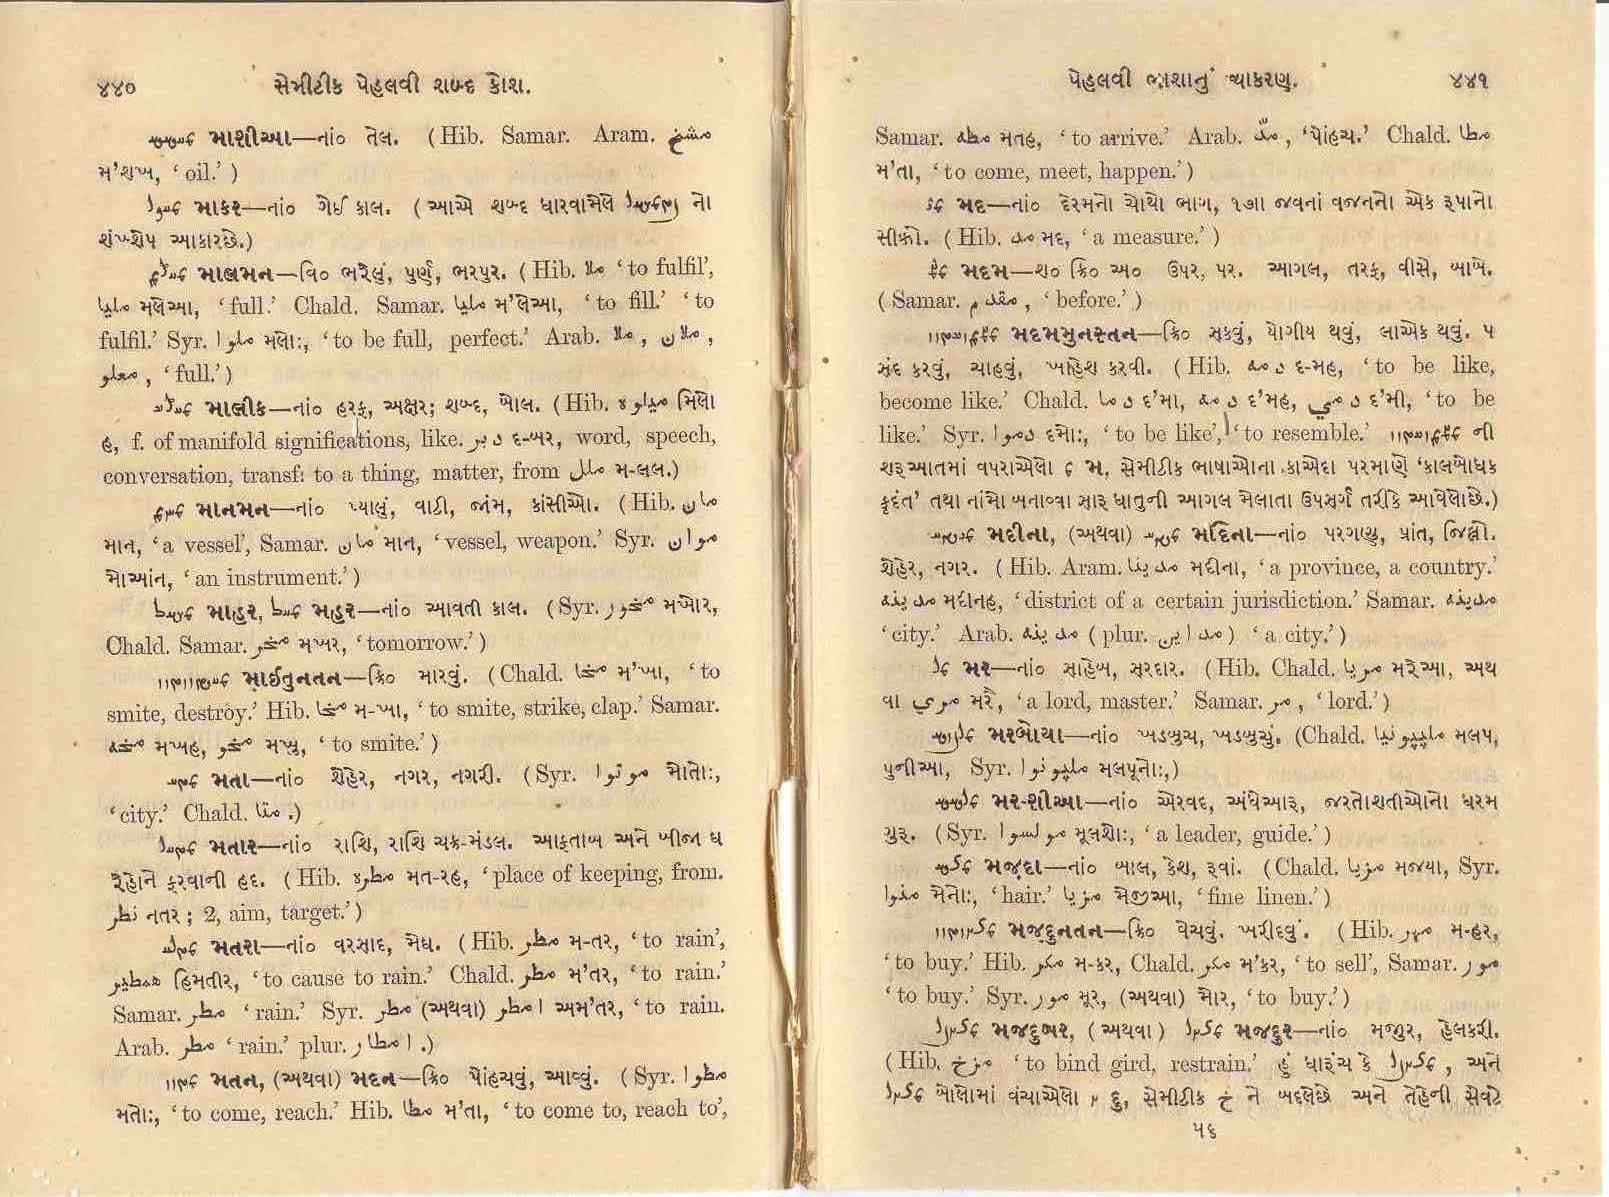 ૪૪૦ સેમીટીક પેહલવી શબ્દ કોશ.
માશીઆ—નાં૦ તેલ. (Hib. Samar. Aram. مشخ
મ'શખ, ‘oil.’)
માકર—નાં૦ ગેઈ કાલ. (આએ શબ્દ ધારવામેલે નો
શંખ્શેપ આકારછે.)
માલમન—વિ૦ ભરેલું, પુર્ણ, ભરપુર. (Hib. ملا ‘to fulfil’,
مليا મલેઆ, ‘full.’ Chald. Samar. مليا મ'લેઆ, ‘to fill.’ ‘to
fulfil.’ Syr. ملوا મલોઃ, ‘to be full, perfect.’ Arab. ملا, ملان,
مملو, ‘full.’)
માલીક—નાં૦ હરફ, અક્ષર; શબ્દ, બોલ. (Hib. મિલો
હ, f. of manifold significations, like. دبر દ-બર, word, speech,
conversation, transf: to a thing, matter, from ملل મ-લલ.)
માનમન—નાં૦ પ્યાલું, વાટી, જાંમ, કાંસીઓ. (Hib. مان
માન, ‘a vessel’, Samar. مان માન, ‘vessel, weapon.’ Syr. موان
મોઆંન, ‘an instrument.’)
માહુર, મહુર—નાં૦ આવતી કાલ. (Syr. مخور મખોર,
Chald. Samar. مخر મખર, ‘tomorrow.’)
માઈતુનતન—ક્રિ૦ મારવું. (Chald. مخا મ'ખા, ‘to
smite, destroy.’ Hib. مخا મ-ખા, ‘to smite, strike, clap.’ Samar.
مخه મખહ, مخو મખુ, ‘to smite.’)
મતા—નાં૦ શેહેર, નગર, નગરી. (Syr. موتوا મોતોઃ,
‘city.’ Chald. متا.)
મતાર—નાં૦ રાશિ, રાશિ ચક્ર-મંડલ. આફતાબ અને બીજા ઘ
રેહોને ફરવાની હદ. (Hib. મત-રહ, ‘place of keeping, from.
نطر નતર; 2, aim, target.’)
મતરા—નાં૦ વરસાદ, મેઘ. (Hib. مطر મ-તર, ‘to rain’,
હિમતીર, ‘to cause to rain.’ Chald. مطر મ'તર, ‘to rain.’
Samar. مطر ‘rain.’ Syr. مطر (અથવા) امطر અમ'તર, ‘to rain.
Arab. مطر ‘rain.’ plur. امطار.)
મતન, (અથવા) મદન—ક્રિ૦ પોંહચવું, આવ્વું. (Syr. مطوا
મતોઃ, ‘to come, reach.’ Hib. مطا મ'તા, ‘to come to, reach to’,
પેહલવી ભાશાનું વ્યાકરણ. ૪૪૧
Samar. مطه મતહ, ‘to arrive.’ Arab. مدّ, ‘પોંહચ.’ Chald. مطا
મ'તા, ‘to come, meet, happen.’)
મદ—નાં૦ દેરમનો ચોથો ભાગ, ૧૭ા જવનાં વજનનો એક રૂપાનો
સીક્કો. (Hib. مد મદ, ‘a measure.’)
મદમ—શ૦ ક્રિ૦ અ૦ ઉપર, પર. આગલ, તરફ, વીસે, બાબે.
(Samar. مقدم, ‘before.’)
મદમમુનસ્તન—ક્રિ૦ સકવું, યોગીય થવું, લાએક થવું. પ
સંદ કરવું, ચાહવું, ખાહેશ કરવી. (Hib. دمه દ-મહ, ‘to be like,
become like.’ Chald. دما દ'મા, دمه દ'મહ, دمي દ'મી, ‘to be
like.’ Syr. دموا દમોઃ, ‘to be like’, ‘to resemble.’ ની
શરૂઆતમાં વપરાએલો મ, સેમીટીક ભાષાઓના કાએદા પરમાણે ‘કાલબોધક
કૃદંત’ તથા નાંમો બનાવ્વા સારૂ ધાતુની આગલ મેલાતા ઉપસર્ગ તરીકે આવેલોછે.)
મદીના, (અથવા) મદિના—નાં૦ પરગણુ, પ્રાંત, જિલ્લો.
શેહેર, નગર. (Hib. Aram. مدينا મદીના, ‘a province, a country.’
مدينه મદીનહ, ‘district of a certain jurisdiction.’ Samar. مدينه
‘city.’ Arab. مدينه (plur. مداين) ‘a city.’)
મર—નાં૦ સાહેબ, સરદાર. (Hib. Chald. મરેઆ, અથ
વા મરૈ, ‘a lord, master.’ Samar. مر, ‘lord.’)
મરબોયા—નાં૦ ખડબુચ, ખડબુચું. (Chald. મલપ,
પુનીઆ, Syr. મલપૂનોઃ,)
મર-શીઆ—નાં૦ એરવદ, અંધેઆરૂ, જરતોશતીઓનો ધરમ
ગુરૂ. (Syr. મૂલશોઃ, ‘a leader, guide.’)
મજદા—નાં૦ બાલ, કેશ, રૂવાં. (Chald. مزيا મજયા, Syr.
મેનોઃ, ‘hair.’ مزيا મેજીઆ, ‘fine linen.’)
મજદુનતન—ક્રિ૦ વેચવું. ખરીદવું. (Hib. مهر મ-હર,
‘to buy.’ Hib. مكر મ-કર, Chald. مكر મ'કર, ‘to sell’, Samar. مور
‘to buy.’ Syr. مور મૂર, (અથવા) મોર, ‘to buy.’)
મજદુબર, (અથવા) મજદુર—નાં૦ મજુર, હેલકરી.
(Hib. مزخ ‘to bind gird, restrain.’ હું ધારૂંચ કે , અને
બોલોમાં વંચાએલો દુ, સેમીટીક خ ને બદલેછે અને તેહેની સેવટે
૫૬